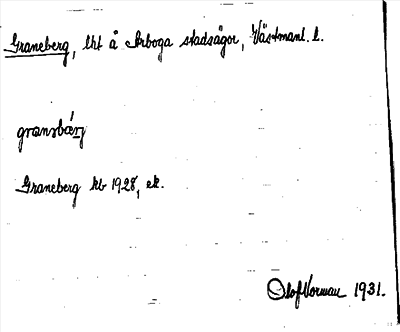 Graneberg, lht å Arboga stadsägor, Västmanl. l.
Graneberg kb 1928, ek.
Olof Norman 1931.